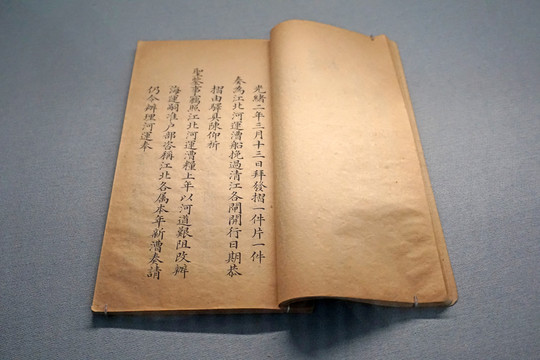 光緒二年三月十三日拜發摺一件片一件
奏為江北河運漕船挽過清江各閘開行日期恭
摺由驛具陳仰祈
聖鑒事竊照江北河運漕糧上年以河道艱阻改辦
海運嗣准户部咨稱江北各属本年新漕奏請
仍令辦理河運奉